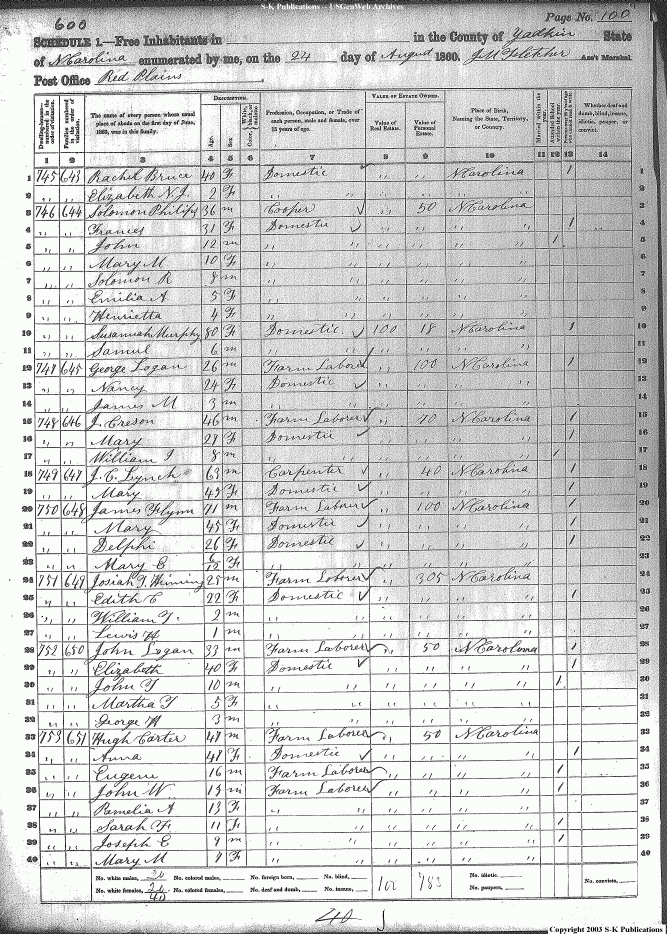 S-K Publications -- USGenWeb Archives
600
Page No. 100
SCHEDULE 1.—Free Inhabitants in in the County of Yadkin State
of N Carolina enumerated by me, on the 24 day of August 1860. J M Fletcher Ass't Marshal
Post Office Red Plains
DESCRIPTION. VALUE OF ESTATE OWNED.
The name of every person whose usual place of abode on the first day of June, 1860, was in this family. Age. Sex. Profession, Occupation, or Trade of each person, male and female, over 15 years of age. Value of Real Estate. Value of Personal Estate. Place of Birth, Naming the State, Territory, or Country. Married within the year. Whether deaf and dumb, blind, insane, idiotic, pauper, or convict.
1 2 3 4 5 6 7 8 9 10 11 12 13 14
1 745 643 Rachel Bruce 40 F Domestic " " N Carolina 1 1
2 " " Elizabeth N.J. 2 F " " " "
746 644 Solomon Philips 36 m Cooper " 50 N Carolina
4 " " Frances 31 F Domestic " " " " 1 4
5 " " John 12 m " " " " 1 5
6 " " Mary M 10 F " " " " 6
7 " " Solomon R 8 m " " " " 7
8 " " Emilia A 5 F " " " " 8
9 " " Henrietta 4 F " " " " 9
10 " " Susannah Murphy 80 F Domestic 100 18 N Carolina 1 10
11 " " Samul 6 m " " " " 11
12 747 645 George Logan 26 m Farm Laborer " 100 N Carolina 1 12
13 " " Nancy 24 F Domestic " " " " 13
14 " " James M 3 m " " " " 14
15 748 646 J. Creson 46 m Farm Laborer " 70 N Carolina 1 15
16 " " Mary 29 F Domestic " " " " 1 16
17 " " William J 8 m " " " " 1 17
18 749 647 J. C. Lynch 63 m Carpenter " 40 N Carolina 1 18
19 " " Mary 49 F Domestic " " " " 1 19
20 750 648 James Flynn 71 m Farm Laborer " 100 N Carolina 1 20
21 " " Mary 45 F Domestic " " " " 1 21
22 " " Delphi 26 F Domestic " " " " 1 22
23 " " Mary E 6/12 F " " " " 23
24 751 649 Josiah T. 25 m Farm Laborer " 305 N Carolina 1 24
25 " " Edith C 22 F Domestic " " " " 1 25
26 " " William T. 2 m " " " " 26
27 " " Lewis H 1 m " " " " 27
28 752 650 John Logan 33 m Farm Laborer " 50 N Carolina 1 28
29 " " Elizabeth 40 F Domestic " " " " 1 29
30 " " John T 10 m " " " " 1 30
31 " " Martha T 5 F " " " " 31
32 " " George H 3 m " " " " 32
33 753 651 Hugh Carter 47 m Farm Laborer " 50 N Carolina 33
34 " " Anna 47 F Domestic " " " " 1 34
35 " " Eugene 16 m Farm Laborer " " " " 1 35
36 " " John W. 15 m Farm Laborer " " " " 1 36
37 " " Pamelia A 13 F " " " " 37
38 " " Sarah F 11 F " " " " 1 38
39 " " Joseph E 9 m " " " " 1 39
40 " " Mary M 7 F " " " " 40
No. white males, 20 No. colored males, No. foreign born, No. blind, 100 783 No. idiotic, No. convicts,
No. white females, 20 No. colored females, No. deaf and dumb, No. insane, No. paupers,
40
40
Copyright 2003 S-K Publications